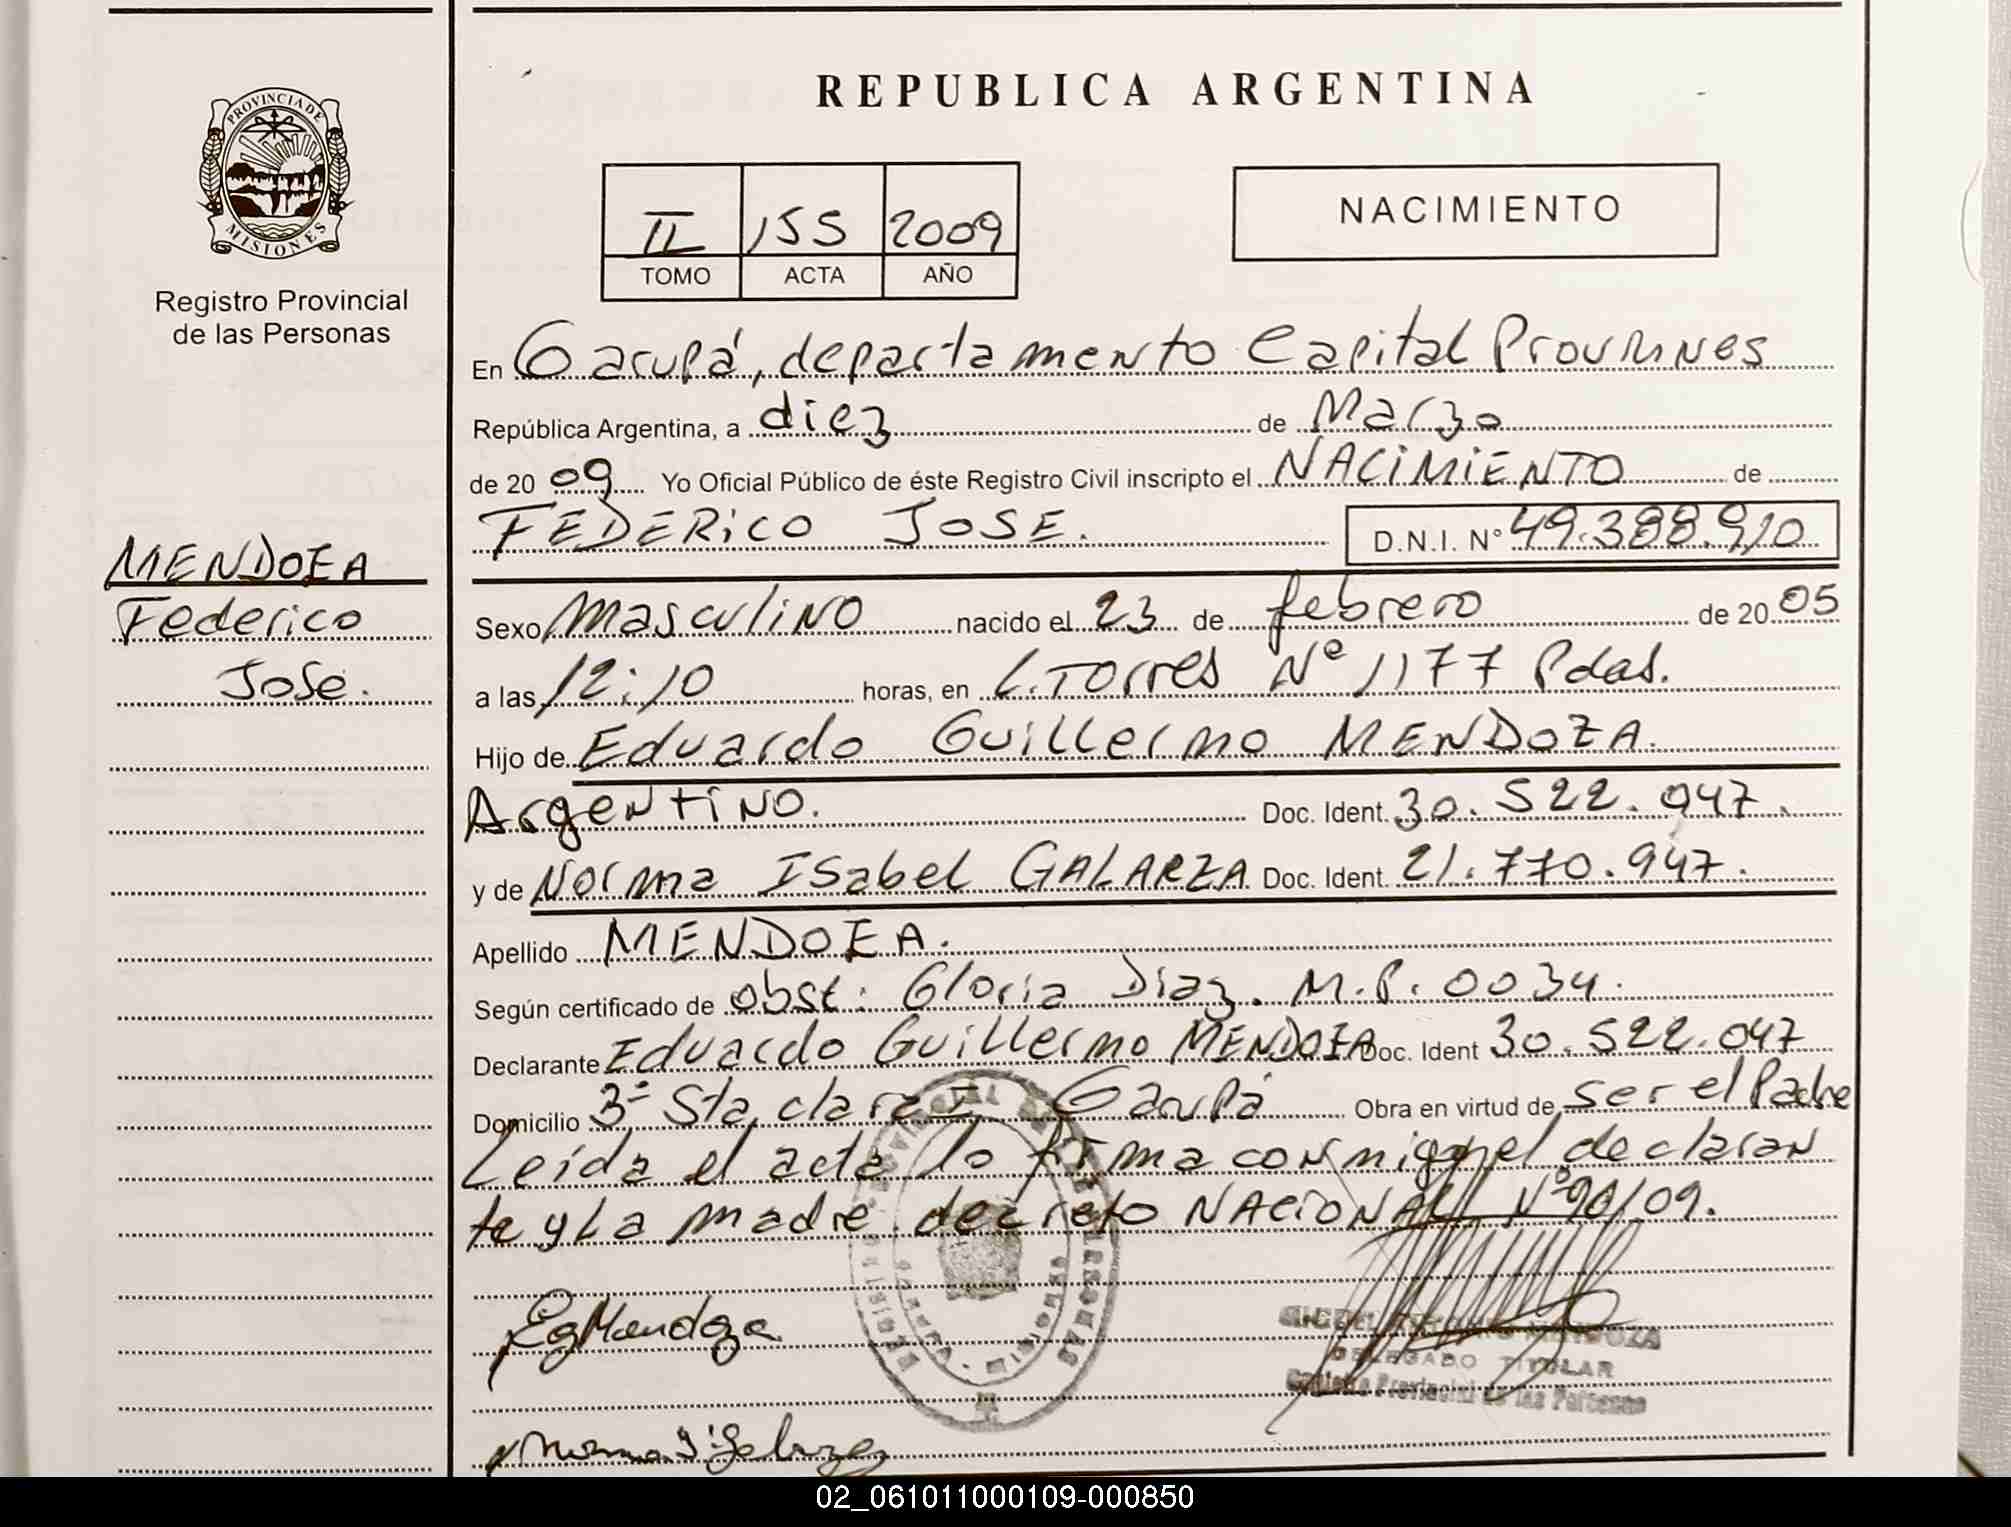 REPUBLICA ARGENTINA
PROVINCIA DE
MISIONES
Registro Provincial
de las Personas
II 155 2009
TOMO ACTA AÑO
NACIMIENTO
En Garupá, departamento Capital
República Argentina, a diez de Marzo
de 20 09 Yo Oficial Público de éste Registro Civil inscripto el NACIMIENTO de
FEDERICO JOSE. D.N.I. N° 49.388.910
MENDOZA
Federico
José.
Sexo Masculino nacido el 23 de febrero de 20 05
a las 12:10 horas, en L. Torres Nº 1177 Pdas.
Hijo de Eduardo Guillermo MENDOZA.
Argentino. Doc. Ident. 30.522.947.
y de Norma ISabel GALARZA Doc. Ident. 21.770.947.
Apellido MENDOZA.
Según certificado de obst. Gloria Diaz. M.P. 0034.
Declarante Eduardo Guillermo MENDOZA Doc. Ident 30.522.047
Domicilio 3ª Sta, clara I Garupá Obra en virtud de ser el Padre
Leída el acta lo firma conmigo el declaran
te y La madre. decreto NACIONAL Nº 90/09.
EgMendoza
DELEGADO TITULAR
Provincial de las Personas
02_061011000109-000850